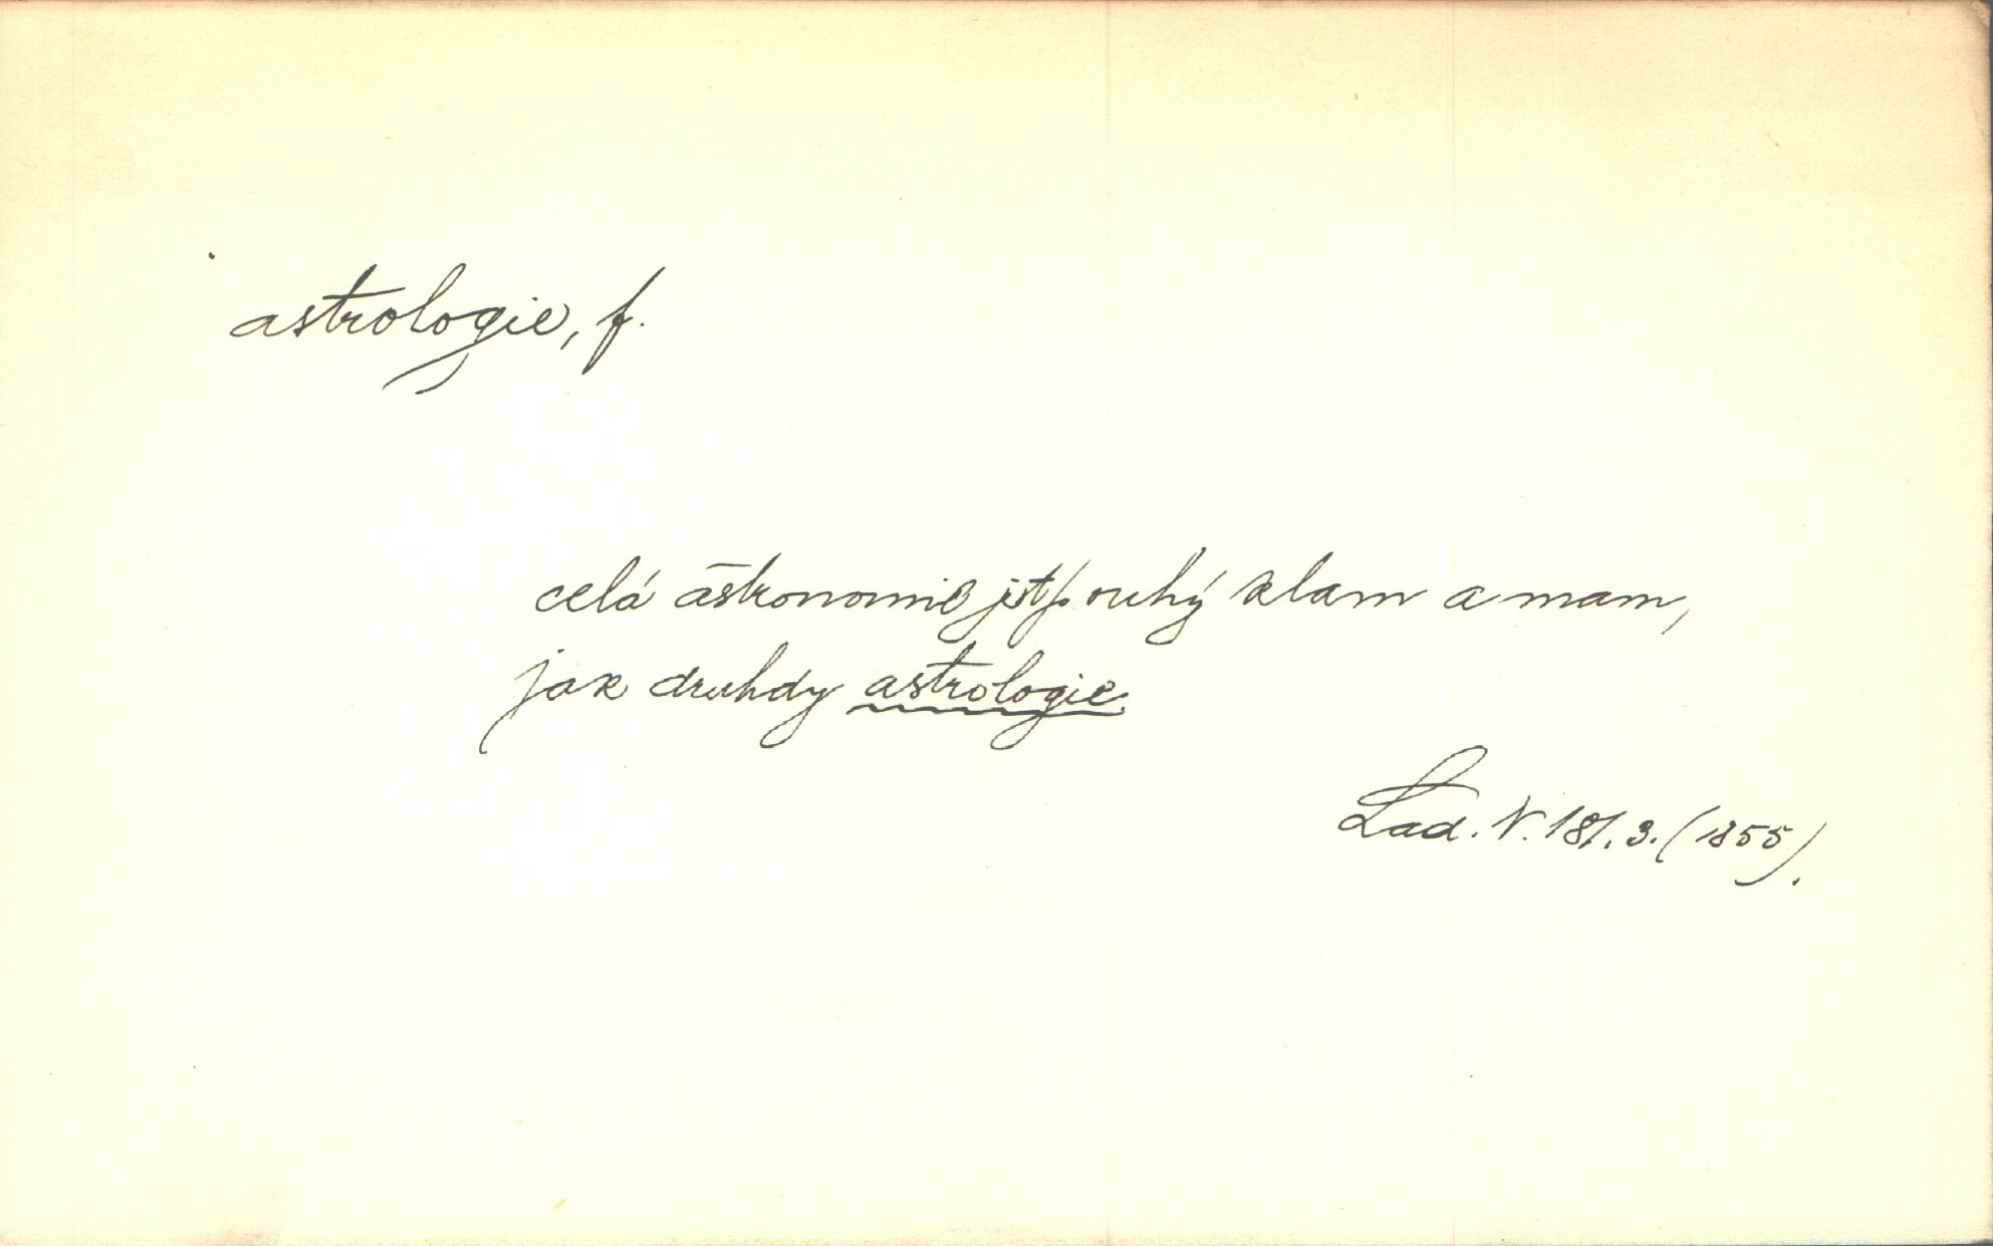 astrologie, f.
celá astronomie jest pouhý klam a mam,
jak druhdy astrologie.
Lad. N. 181.3. (1855).